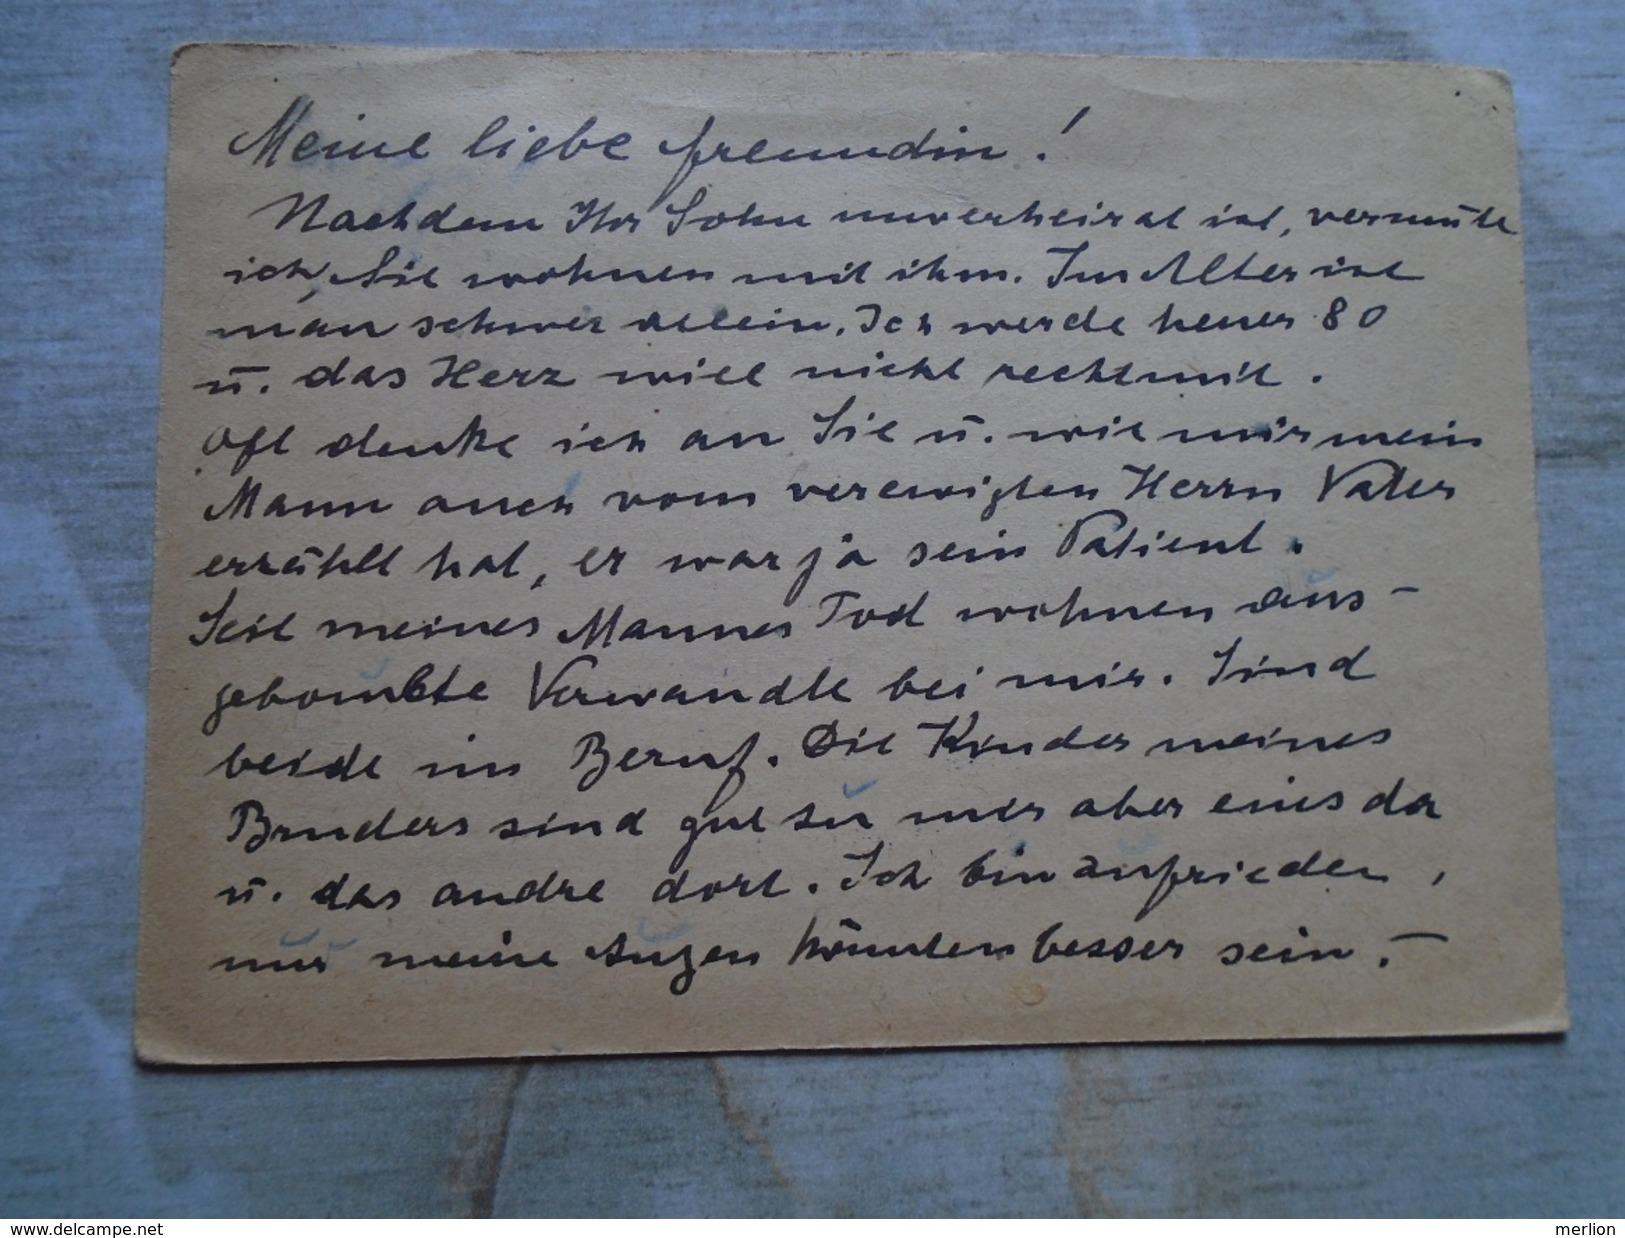 Meine liebe freundin!
Nachdem Ihr Sohn unverheirat ist, vermute
ich, Sie wohnen mit ihm. Im Alter ist
man schwer allein. Ich werde heuer 80
u. das Herz will nicht recht mit.
Oft denke ich an Sie u. wie mir mein
Mann auch vom verewigten Herrn Vater
erzählt hat, er war ja sein Patient.
Seit meines Mannes Tod wohnen aus-
gebombte Verwandte bei mir. Sind
beide im Beruf. Die Kinder meines
Bruders sind gut zu mir aber eines da
u. das andre dort. Ich bin zufrieden,
nur meine Augen könnten besser sein.-
www.delcampe.net
merlion